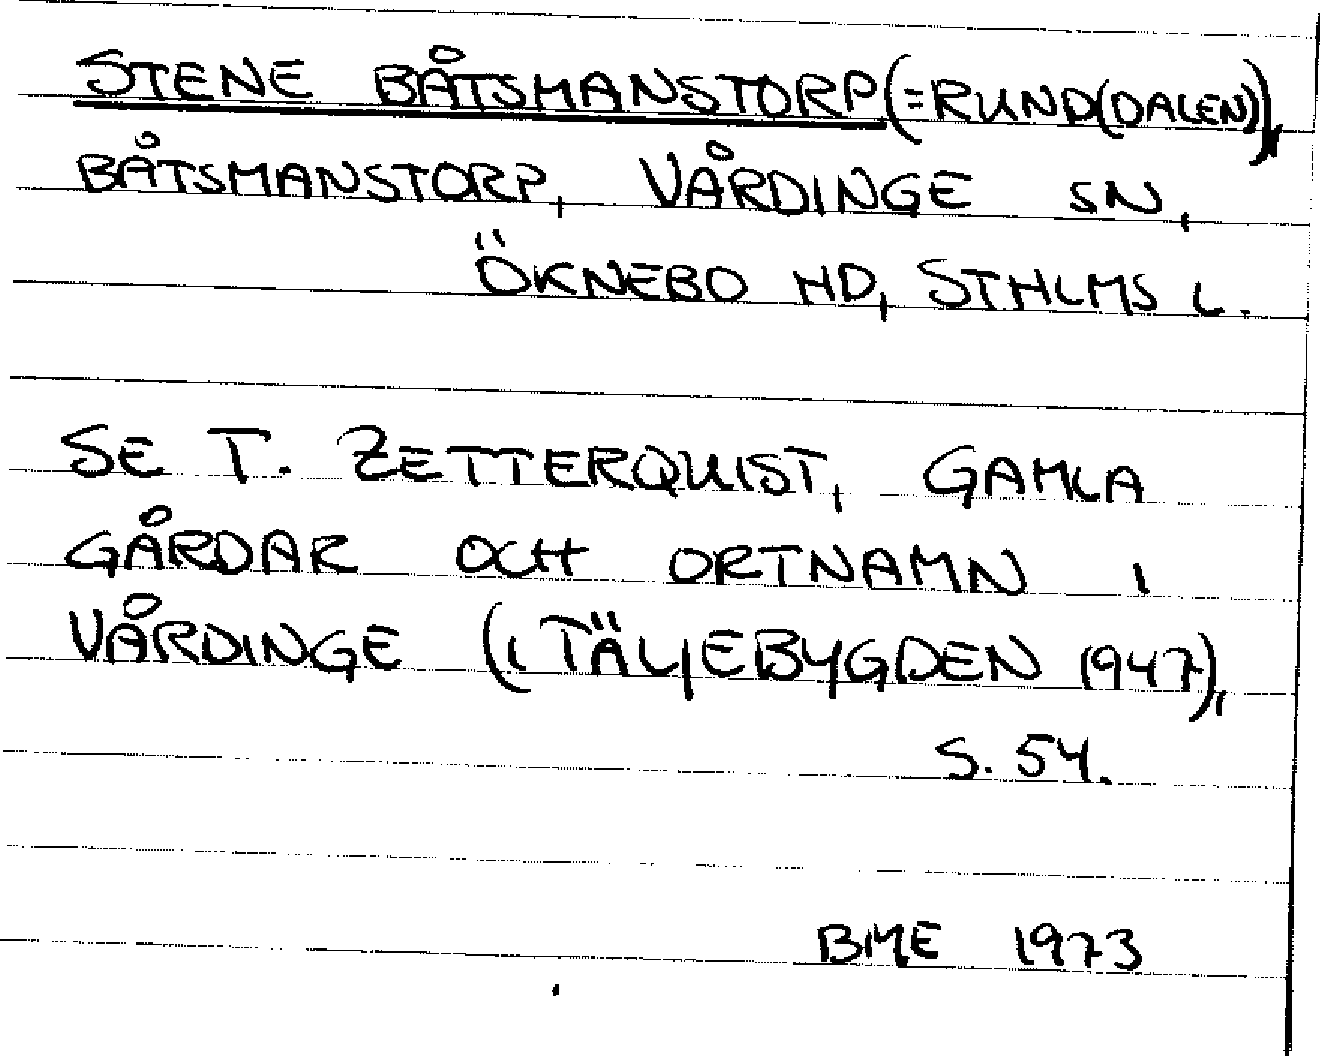 STENE BÅTSMANSTORP (=RUND(DALEN)),
BÅTSMANSTORP, VÅRDINGE SN,
ÖKNEBO HD, STHLMS L.
SE T. ZETTERQUIST, GAMLA
GÅRDAR OCH ORTNAMN I
VÅRDINGE (I TÄLJEBYGDEN 1947),
S. 54.
BME 1973